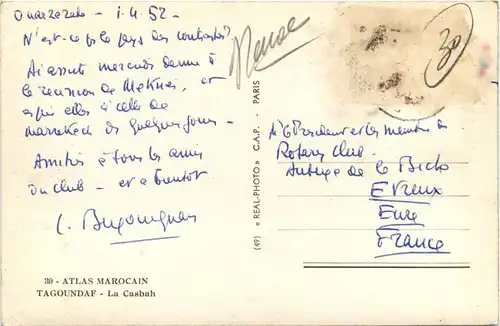 Ouarzazate - 1.4.52 -
N'est-ce pas le pays des contrastes?
Ai assisté mercredi dernier à
la réunion de Meknès, et
à celle de
Marrakech de quelques jours -
Amitiés à tous les amis
du club - et à bientôt
39 - ATLAS MAROCAIN
TAGOUNDAF - La Casbah
(49) « REAL-PHOTO » C.A.P. - PARIS
30
Mr le Président et les membres du
Rotary Club -
Auberge de la Biche
EVreux
Eure
France